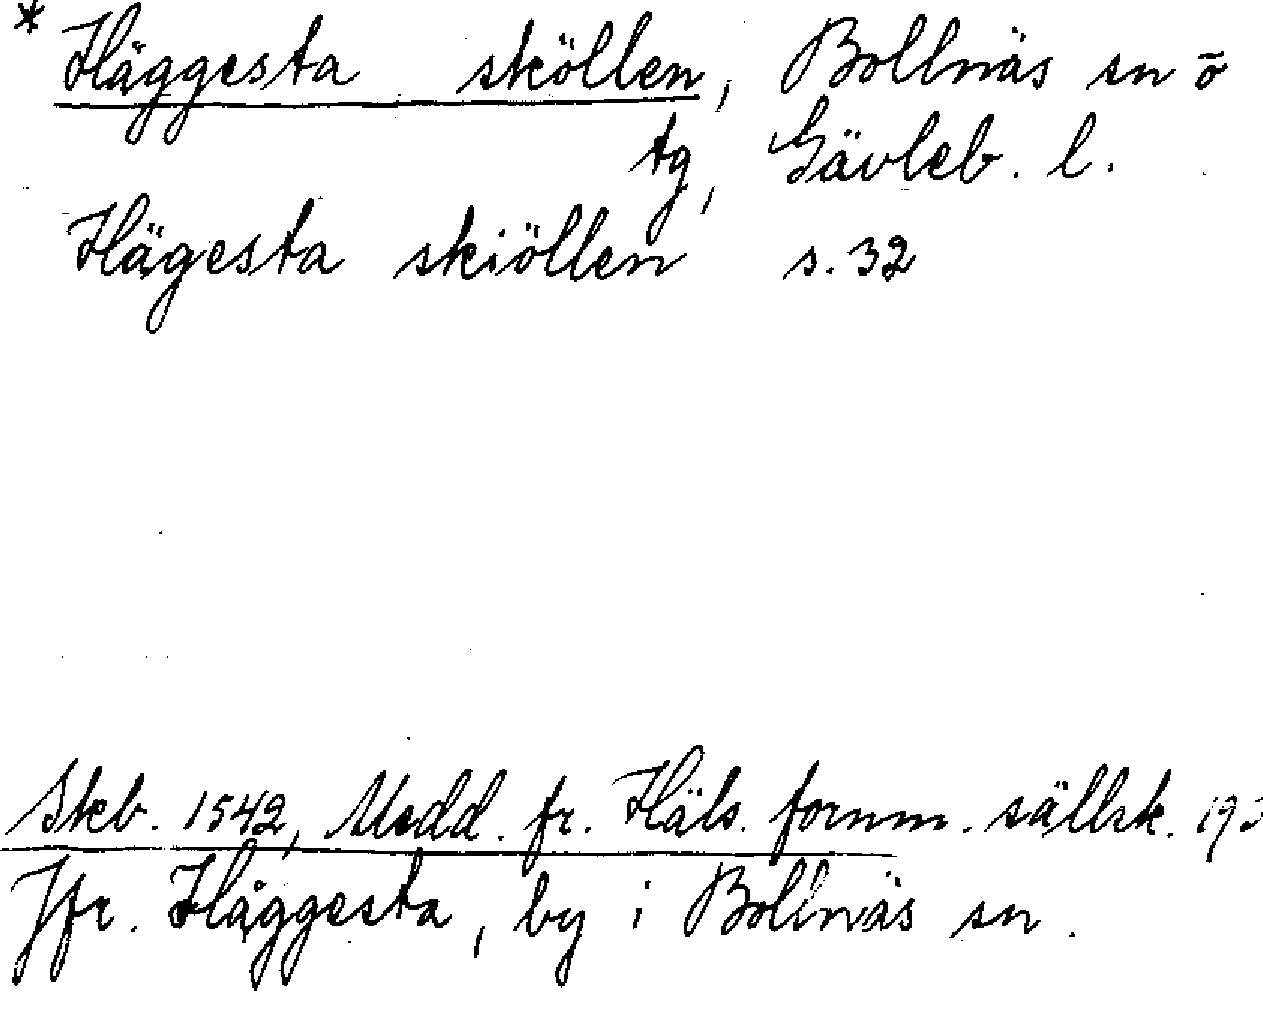 * Häggesta sköllen, Bollnäs sn ō
tg, Gävleb. l.
Hägesta skiöllen s. 32
Skb. 1542, Medd. fr. Häls. fornm. sällsk. 193
Jfr. Häggesta, by i Bollnäs sn.